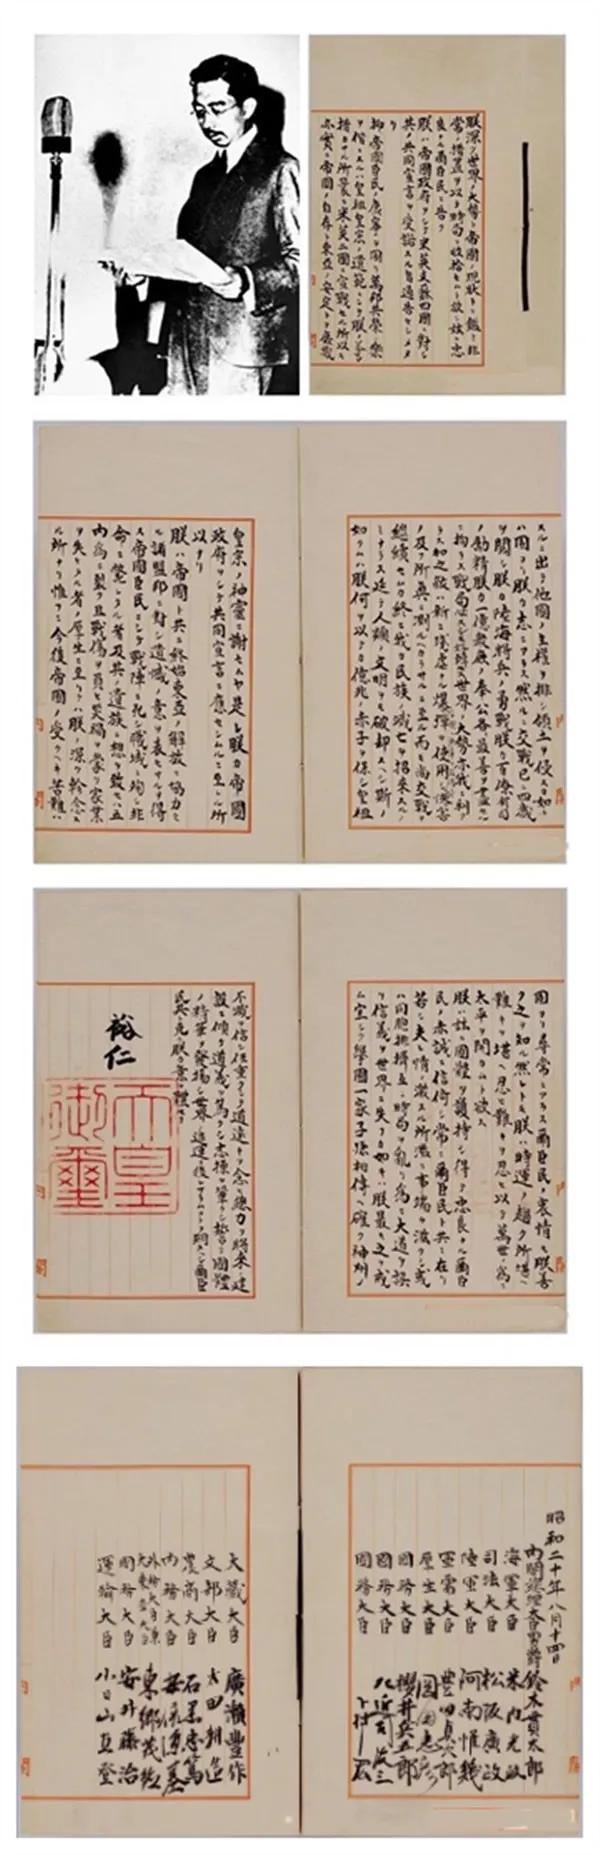 朕深ク世界ノ大勢ト帝國ノ現狀トニ鑑ミ非
常ノ措置ヲ以テ時局ヲ收拾セムト欲シ茲ニ忠
良ナル爾臣民ニ告ク
朕ハ帝國政府ヲシテ米英支蘇四國ニ對シ
其ノ共同宣言ヲ受諾スル旨通告セシメタ
リ
抑帝國臣民ノ康寧ヲ圖リ萬邦共榮ノ樂
ヲ偕ニスルハ皇祖皇宗ノ遺範ニシテ朕ノ拳々
措カサル所曩ニ米英二國ニ宣戰セル所以モ
亦實ニ帝國ノ自存ト東亞ノ安定トヲ庶幾
スルニ出テ他國ノ主權ヲ排シ領土ヲ侵スカ如キ
ハ固ヨリ朕カ志ニアラス然ルニ交戰已ニ四歳
ヲ閲シ朕カ陸海將兵ノ勇戰朕カ百僚有司
ノ勵精朕カ一億衆庶ノ奉公各最善ヲ盡セル
ニ拘ラス戰局必スシモ好轉セス世界ノ大勢亦我ニ利ア
ラス加之敵ハ新ニ殘虐ナル爆彈ヲ使用シ慘害
ノ及フ所眞ニ測ルヘカラサルニ至ル而モ尚交戰ヲ
繼續セムカ終ニ我カ民族ノ滅亡ヲ招來スルノ
ミナラス延テ人類ノ文明ヲモ破却スヘシ斯ノ
如クムハ朕何ヲ以テカ億兆ノ赤子ヲ保シ皇祖
皇宗ノ神靈ニ謝セムヤ是レ朕カ帝國
政府ヲシテ共同宣言ニ應セシムルニ至レル所
以ナリ
朕ハ帝國ト共ニ終始東亞ノ解放ニ協力セ
ル諸盟邦ニ對シ遺憾ノ意ヲ表セサルヲ得
ス帝國臣民ニシテ戰陣ニ死シ職域ニ殉シ非
命ニ斃レタル者及其ノ遺族ニ想ヲ致セハ五
內爲ニ裂ク且戰傷ヲ負ヒ災禍ヲ蒙リ家業
ヲ失ヒタル者ノ厚生ニ至リテハ朕ノ深ク軫念ス
ル所ナリ惟フニ今後帝國ノ受クヘキ苦難ハ
固ヨリ尋常ニアラス爾臣民ノ衷情モ朕善
ク之ヲ知ル然レトモ朕ハ時運ノ趨ク所堪ヘ
難キヲ堪ヘ忍ヒ難キヲ忍ヒ以テ萬世ノ爲ニ
太平ヲ開カムト欲ス
朕ハ茲ニ國體ヲ護持シ得テ忠良ナル爾臣
民ノ赤誠ニ信倚シ常ニ爾臣民ト共ニ在リ
若シ夫レ情ノ激スル所濫ニ事端ヲ滋クシ或
ハ同胞排擠互ニ時局ヲ亂リ爲ニ大道ヲ誤
リ信義ヲ世界ニ失フカ如キハ朕最モ之ヲ戒
ム宜シク擧國一家子孫相傳ヘ確ク神州ノ
不滅ヲ信シ任重クシテ道遠キヲ念ヒ總力ヲ將來ノ建
設ニ傾ケ道義ヲ篤クシ志操ヲ鞏クシ誓テ國體
ノ精華ヲ發揚シ世界ノ進運ニ後レサラムコトヲ期スヘシ爾臣
民其レ克ク朕カ意ヲ體セヨ
裕仁
天皇
御璽
昭和二十年八月十四日
內閣總理大臣男爵 鈴木貫太郎
海軍大臣 米內光政
司法大臣 松阪廣政
陸軍大臣 阿南惟幾
軍需大臣 豐田貞次郎
厚生大臣 岡田忠彦
國務大臣 櫻井兵五郎
國務大臣 左近司政三
國務大臣 下村宏
大藏大臣 廣瀨豐作
文部大臣 太田耕造
農商大臣 石黑忠篤
內務大臣 安倍源基
外務大臣兼
大東亞大臣 東鄕茂德
國務大臣 安井藤治
運輸大臣 小日山直登